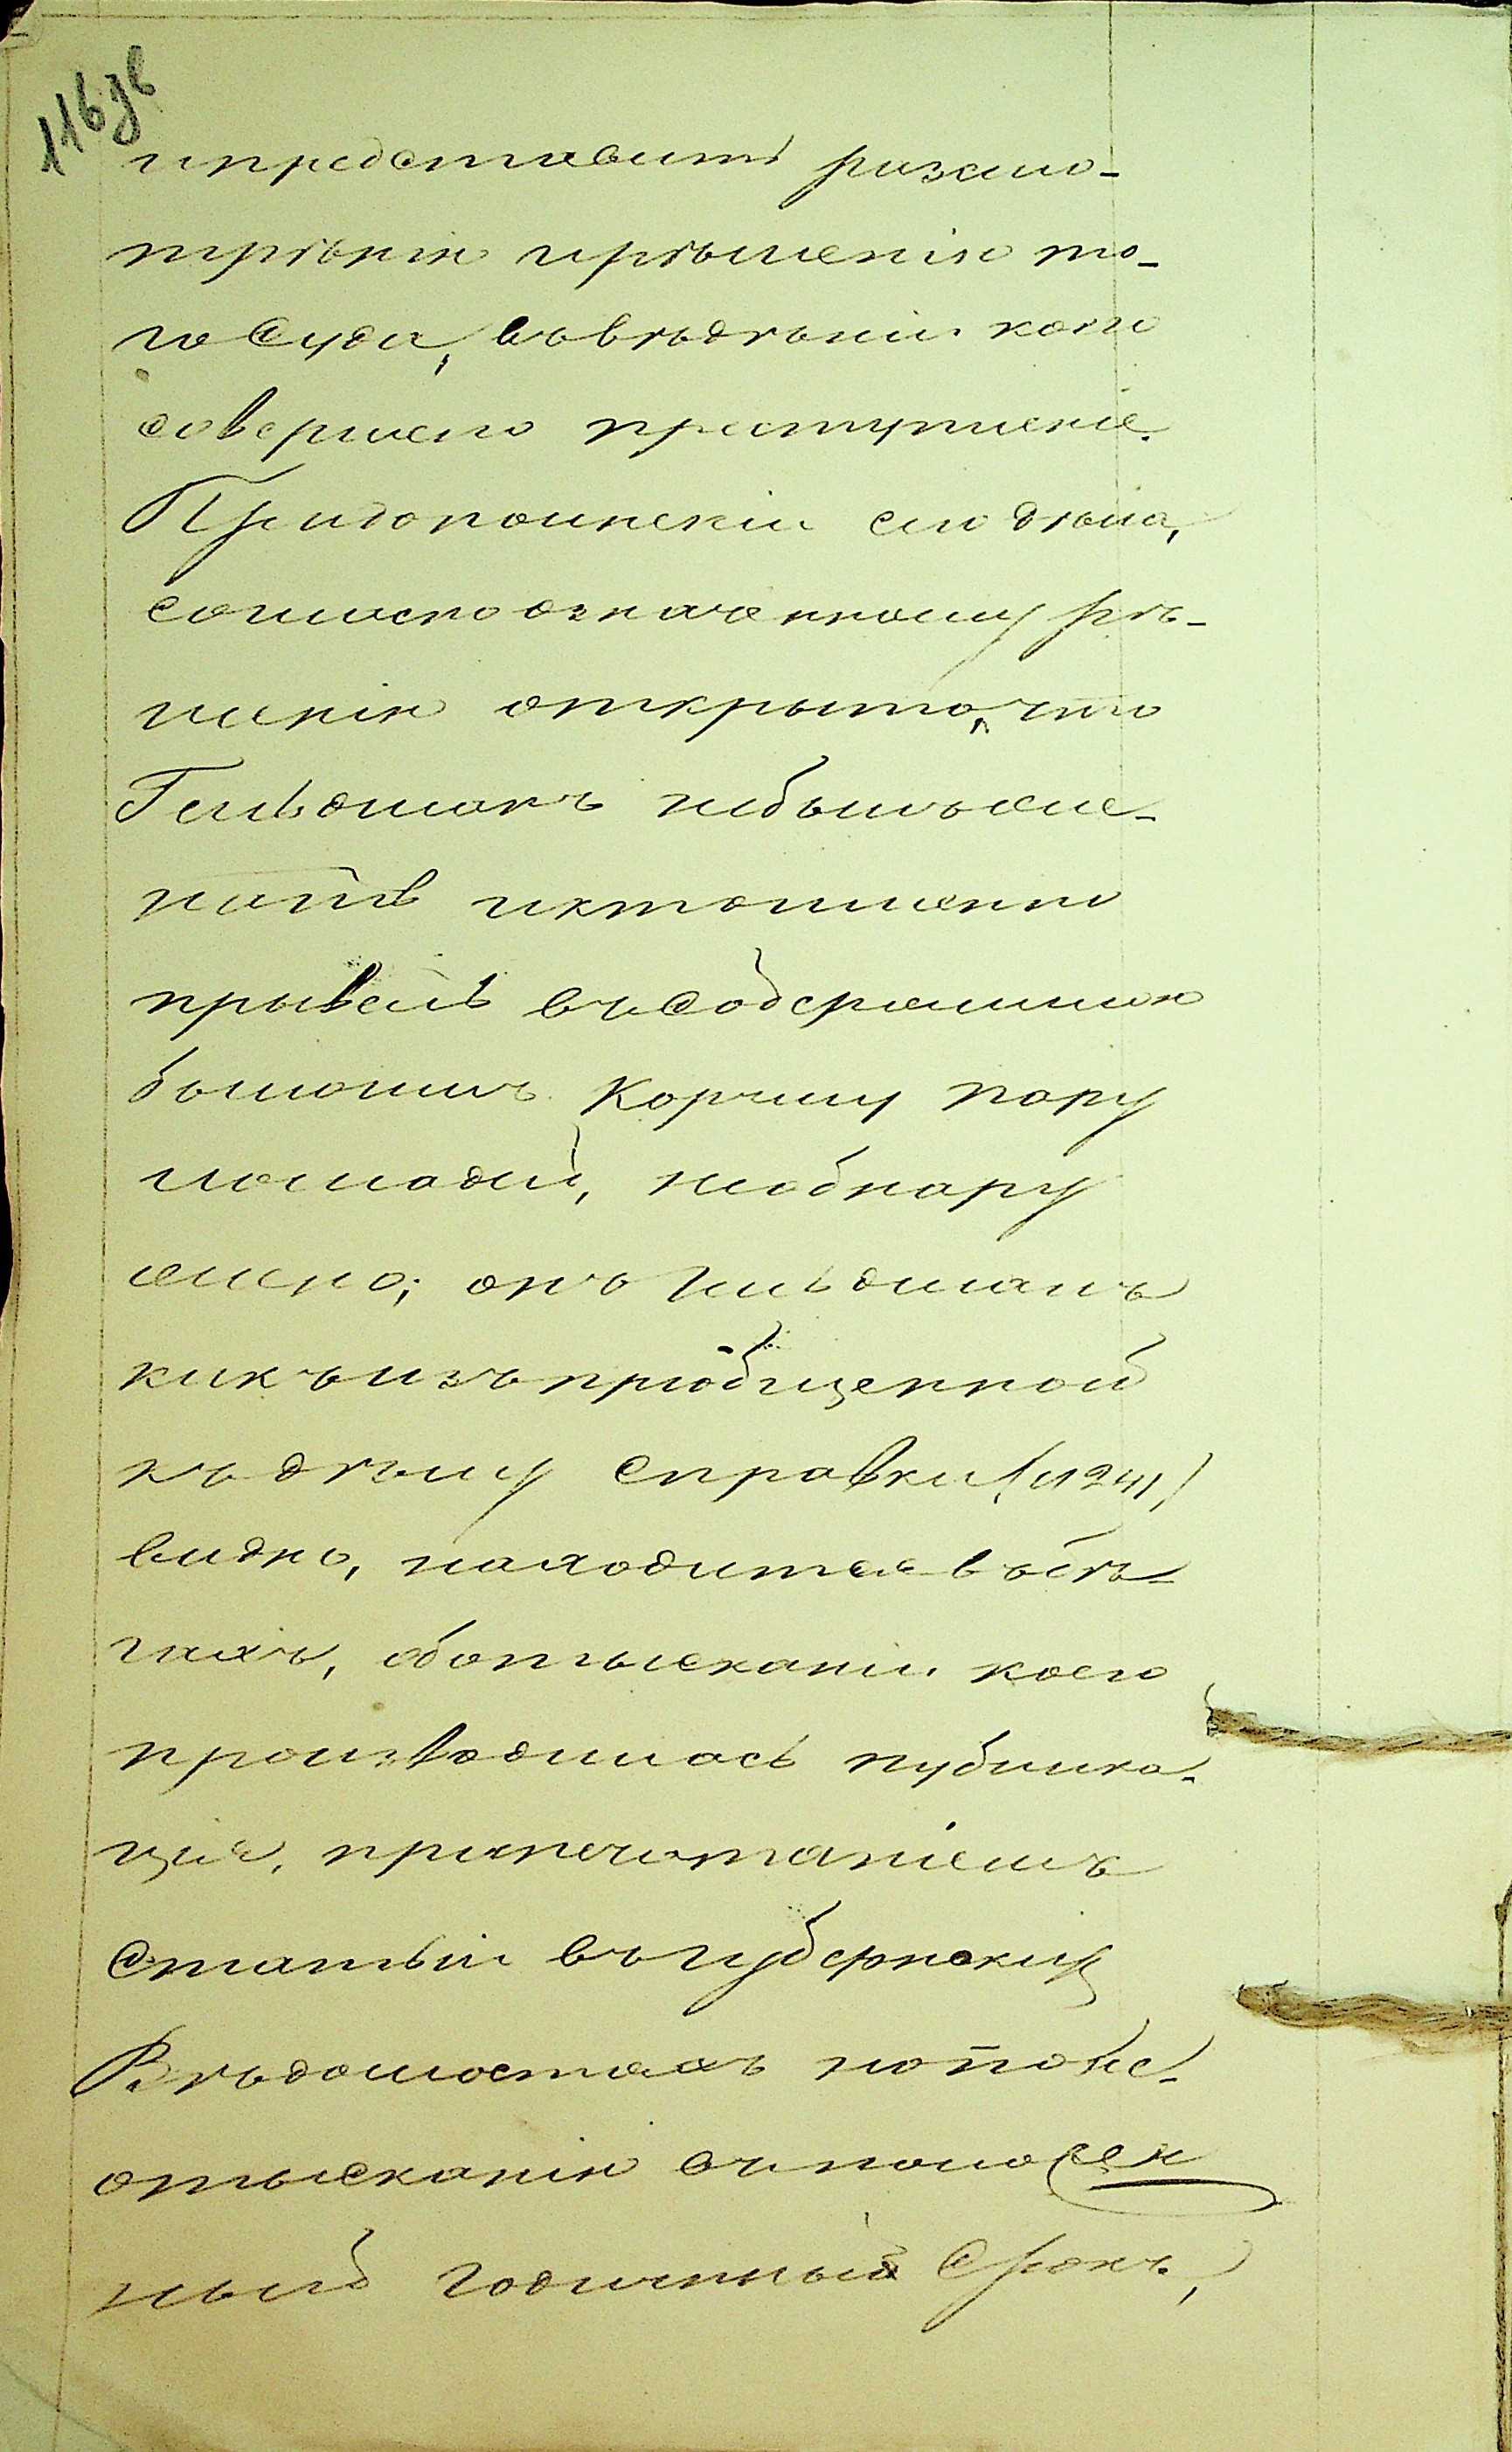 116 зв
ипредставить разсмо-
трѣнію ирѣшенію то-
го Суда, въвѣдѣніи коего
совершено преступленіе.
Придополненіи сего дѣла,
согласно означенному рѣ-
шенію открыто, что
Гельдманъ небылъ же-
натъ иктоименно
привелъ въсодержимую
былоимъ Корчму пару
лошадей, необнару
жено; онъ Гельдманъ
какъ изъ пріобщенной
къ дѣлу Справки (124)
видно, находится въбѣ-
гахъ, оботысканіи коего
производилась публика-
ція, припечатаніемъ
Статьи въ губернскихъ
Вѣдомостяхъ нопонеотысканію въположен
ный годичный Срокъ,